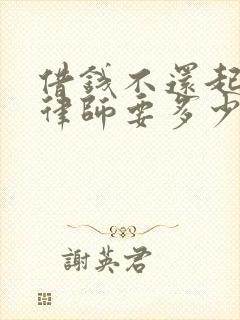 借錢不還起
律師要多少
謝英君